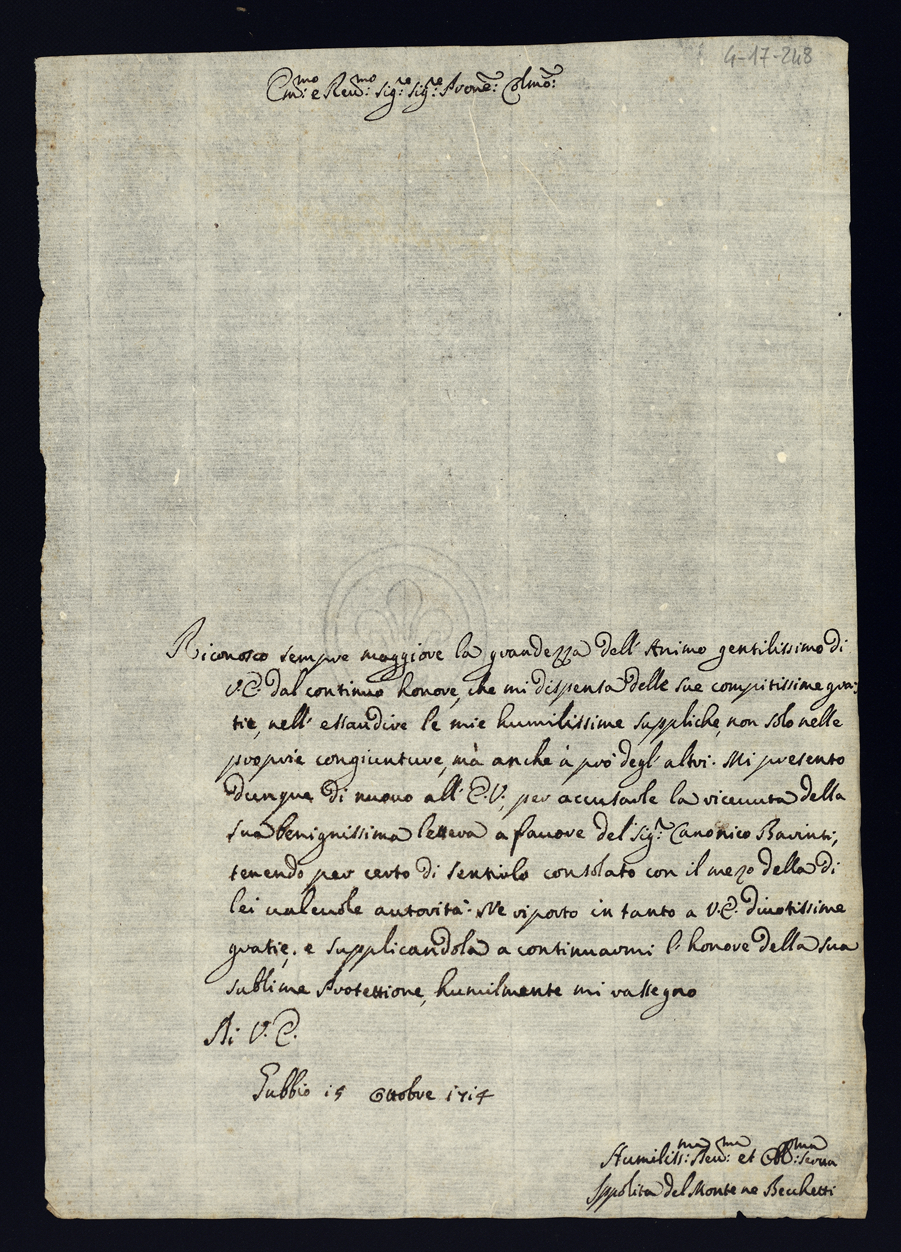 4-17-248
Em:mo e Reu:mo Sig:re Sig:re Prone: Colmo:
Riconosco sempre maggiore la grandezza dell'Animo gentilissimo di
V.E. dal continuo honore, che mi dispensa delle sue compitissime gra:
tie, nell'essaudire le mie humilissime suppliche, non solo nelle
proprie congiunture, mà anche à prò degl'altri. Mi presento
dunque di nuovo all'E.V., per accusarle la riceuuta della
sua benignissima lettera a fauore del Sig:r Canonico
tenendo per certo di sentirlo consolato con il mezo della di
lei ualeuole autorità. Ne riporto in tanto a V.E. diuotissime
gratie, e supplicandola a continuarmi l'honore della sua
sublime Protettione, humilmente mi rassegno
Di V.E.
Gubbio 15 Ottobre 1714
Humiliss:ma Reu:ma et Obb:ma Serua
Ippolita del Monte ne Becchetti